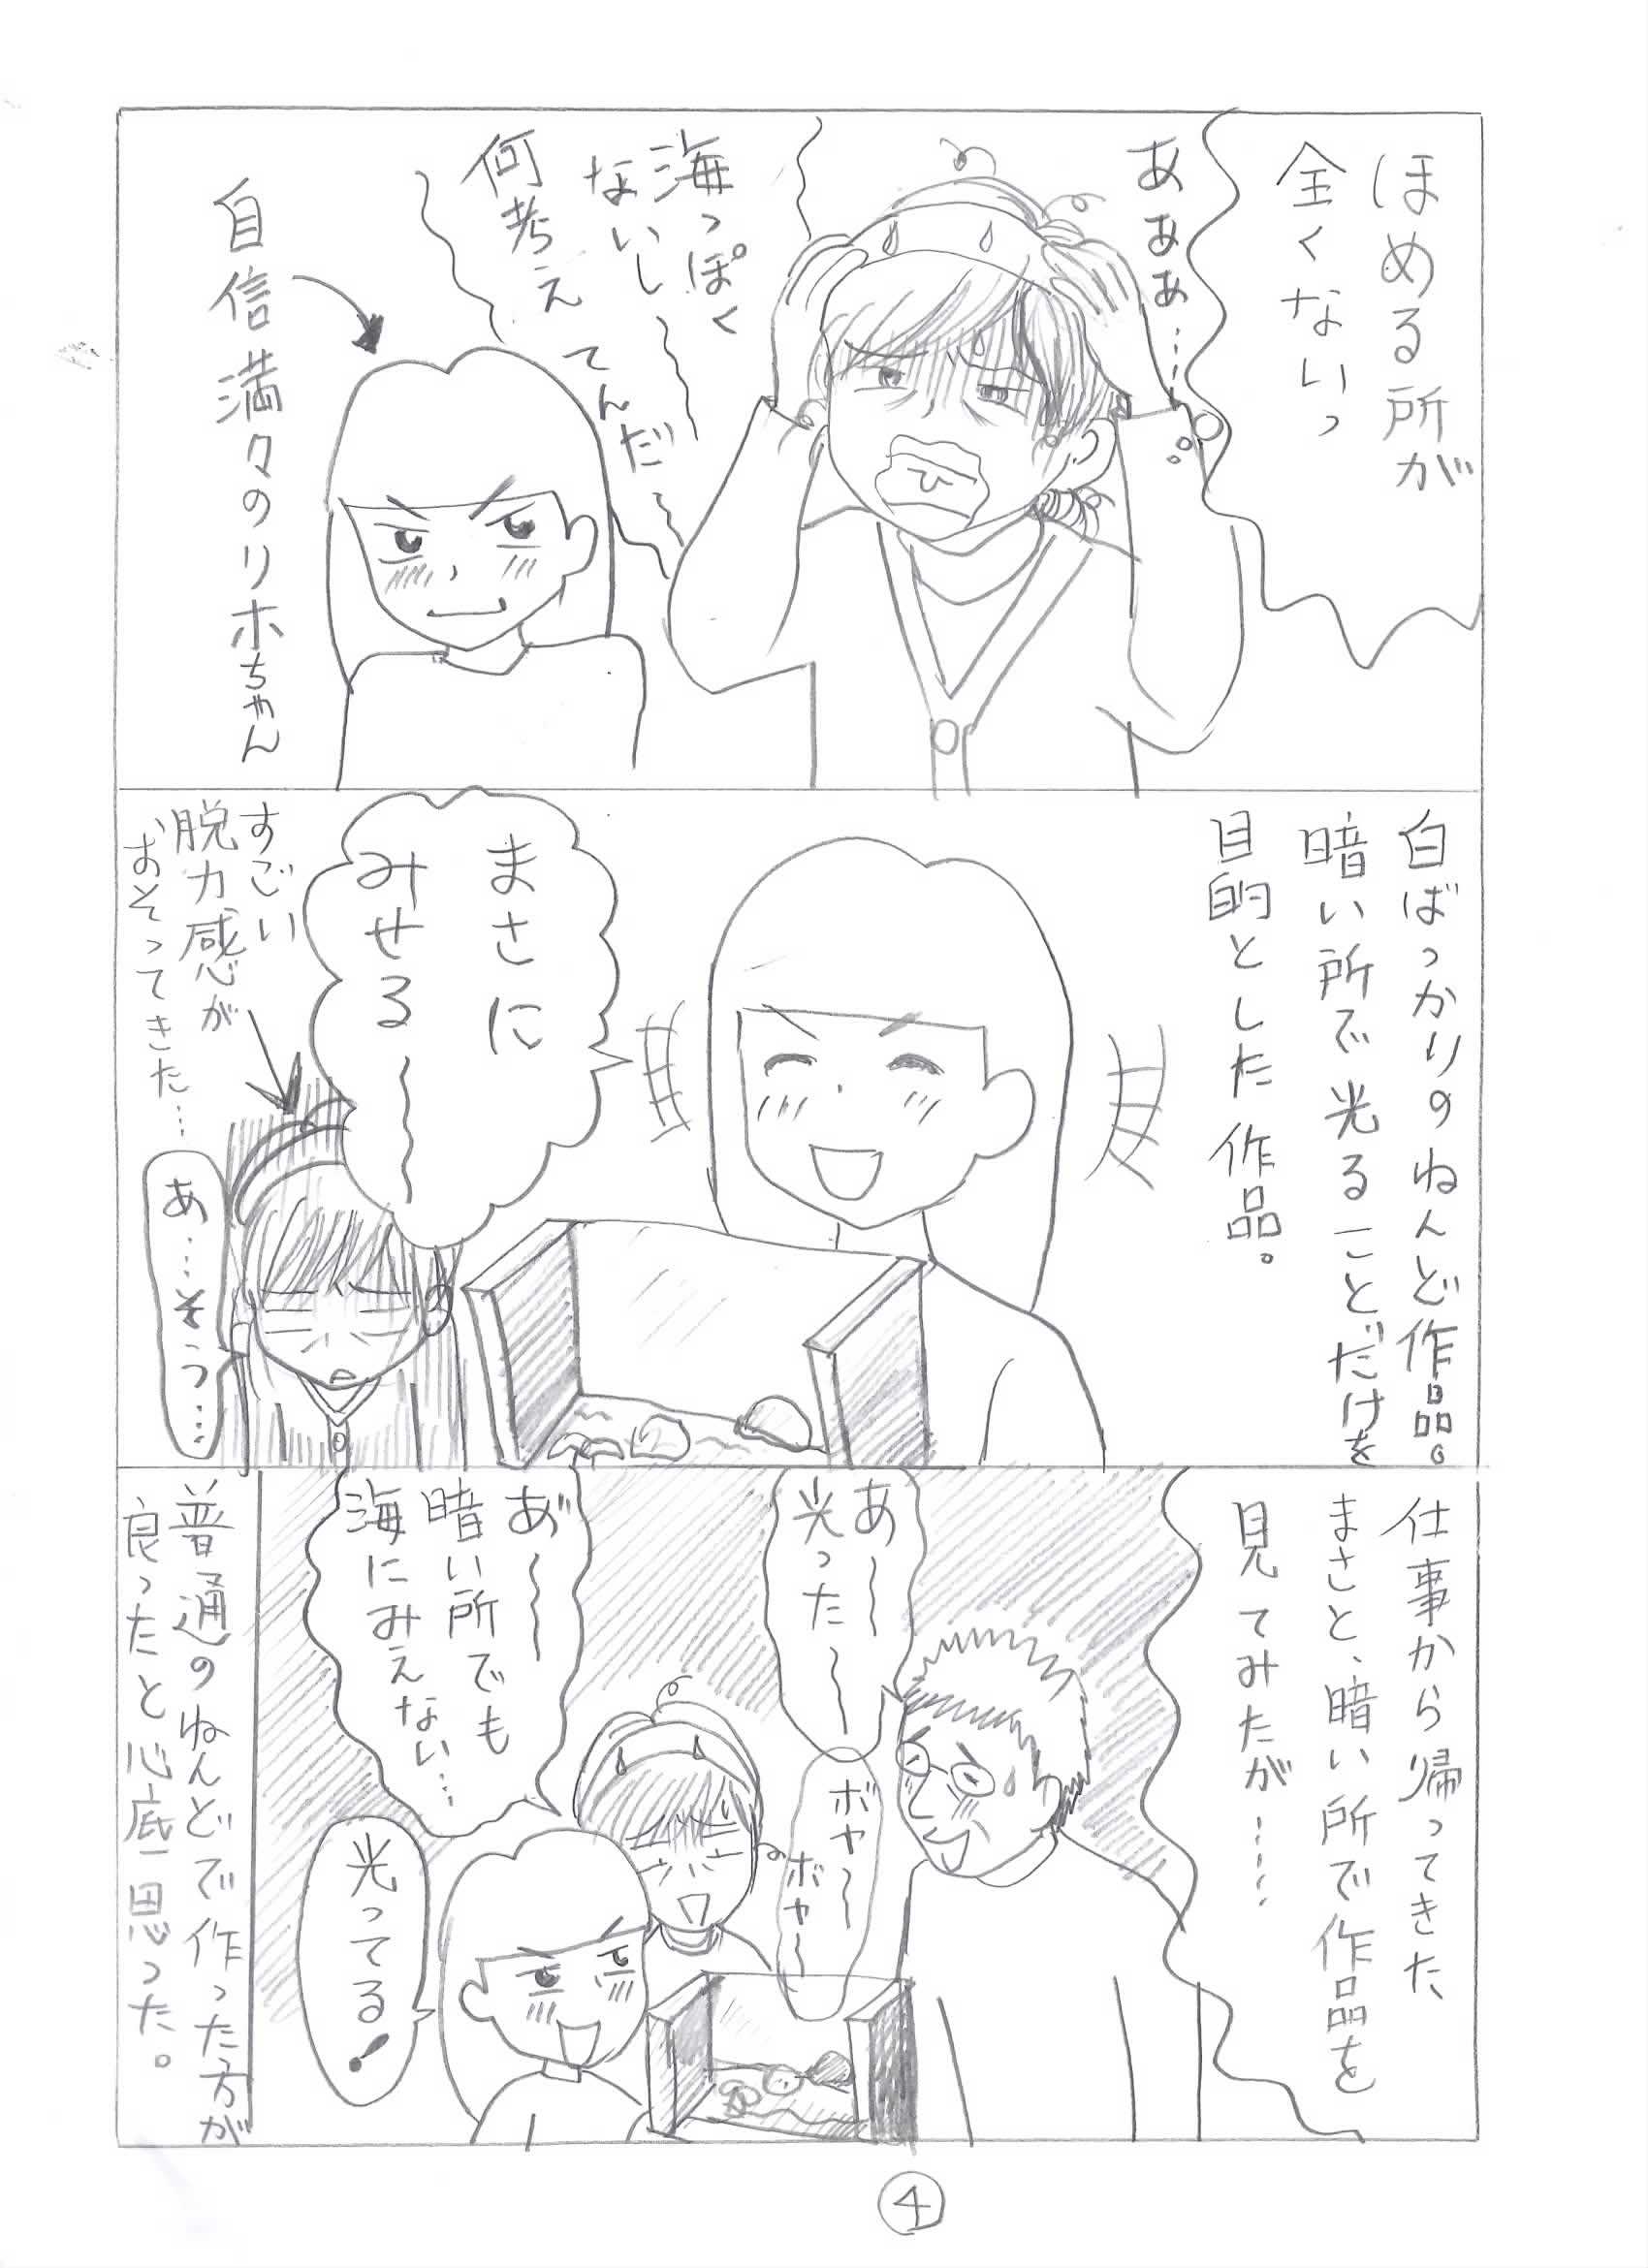 ほめる所が
全くないっ
あぁぁ…
海っぽく
ないし
何考え
てんだ～
自信満々のリホちゃん
白ばっかりのねんど作品。
暗い所で光ることだけを
目的とした作品。
まさに
みせる～
すごい
脱力感が
おそってきた…
あ…そう…
仕事から帰ってきた
まさと、暗い所で作品を
見てみたが……
あ～
光った～
ボヤ～
ボヤ～
あ゛～
暗い所でも
海にみえない…
光ってる！
普通のねんどで作った方が
良ったと心底思った。
④